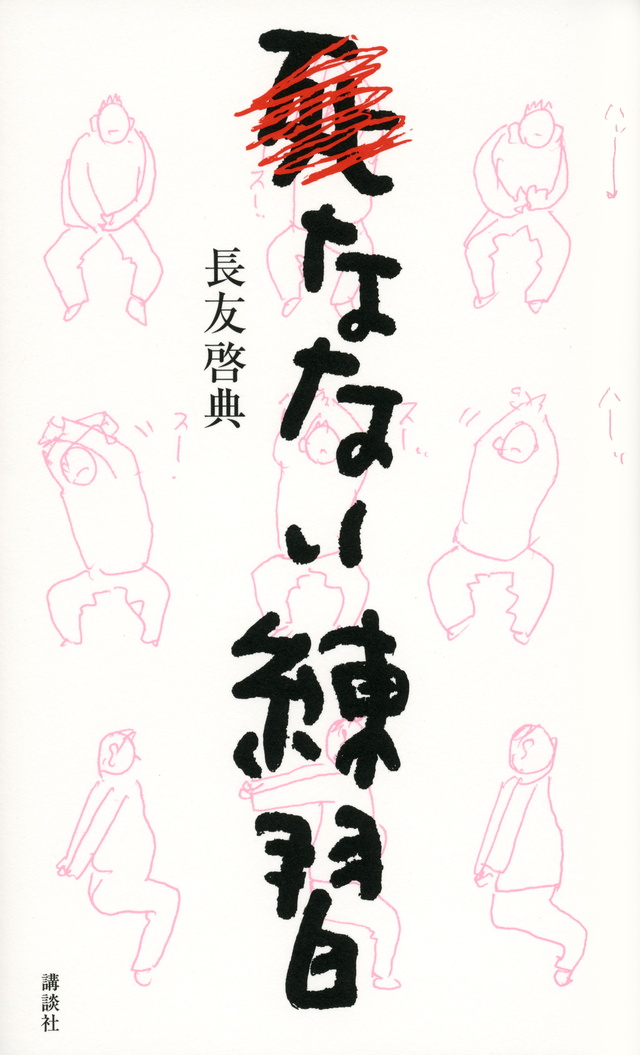 死なない練習
長友啓典
スー‥
ハーッ
スー．
スー‥
ハーッ
講談社